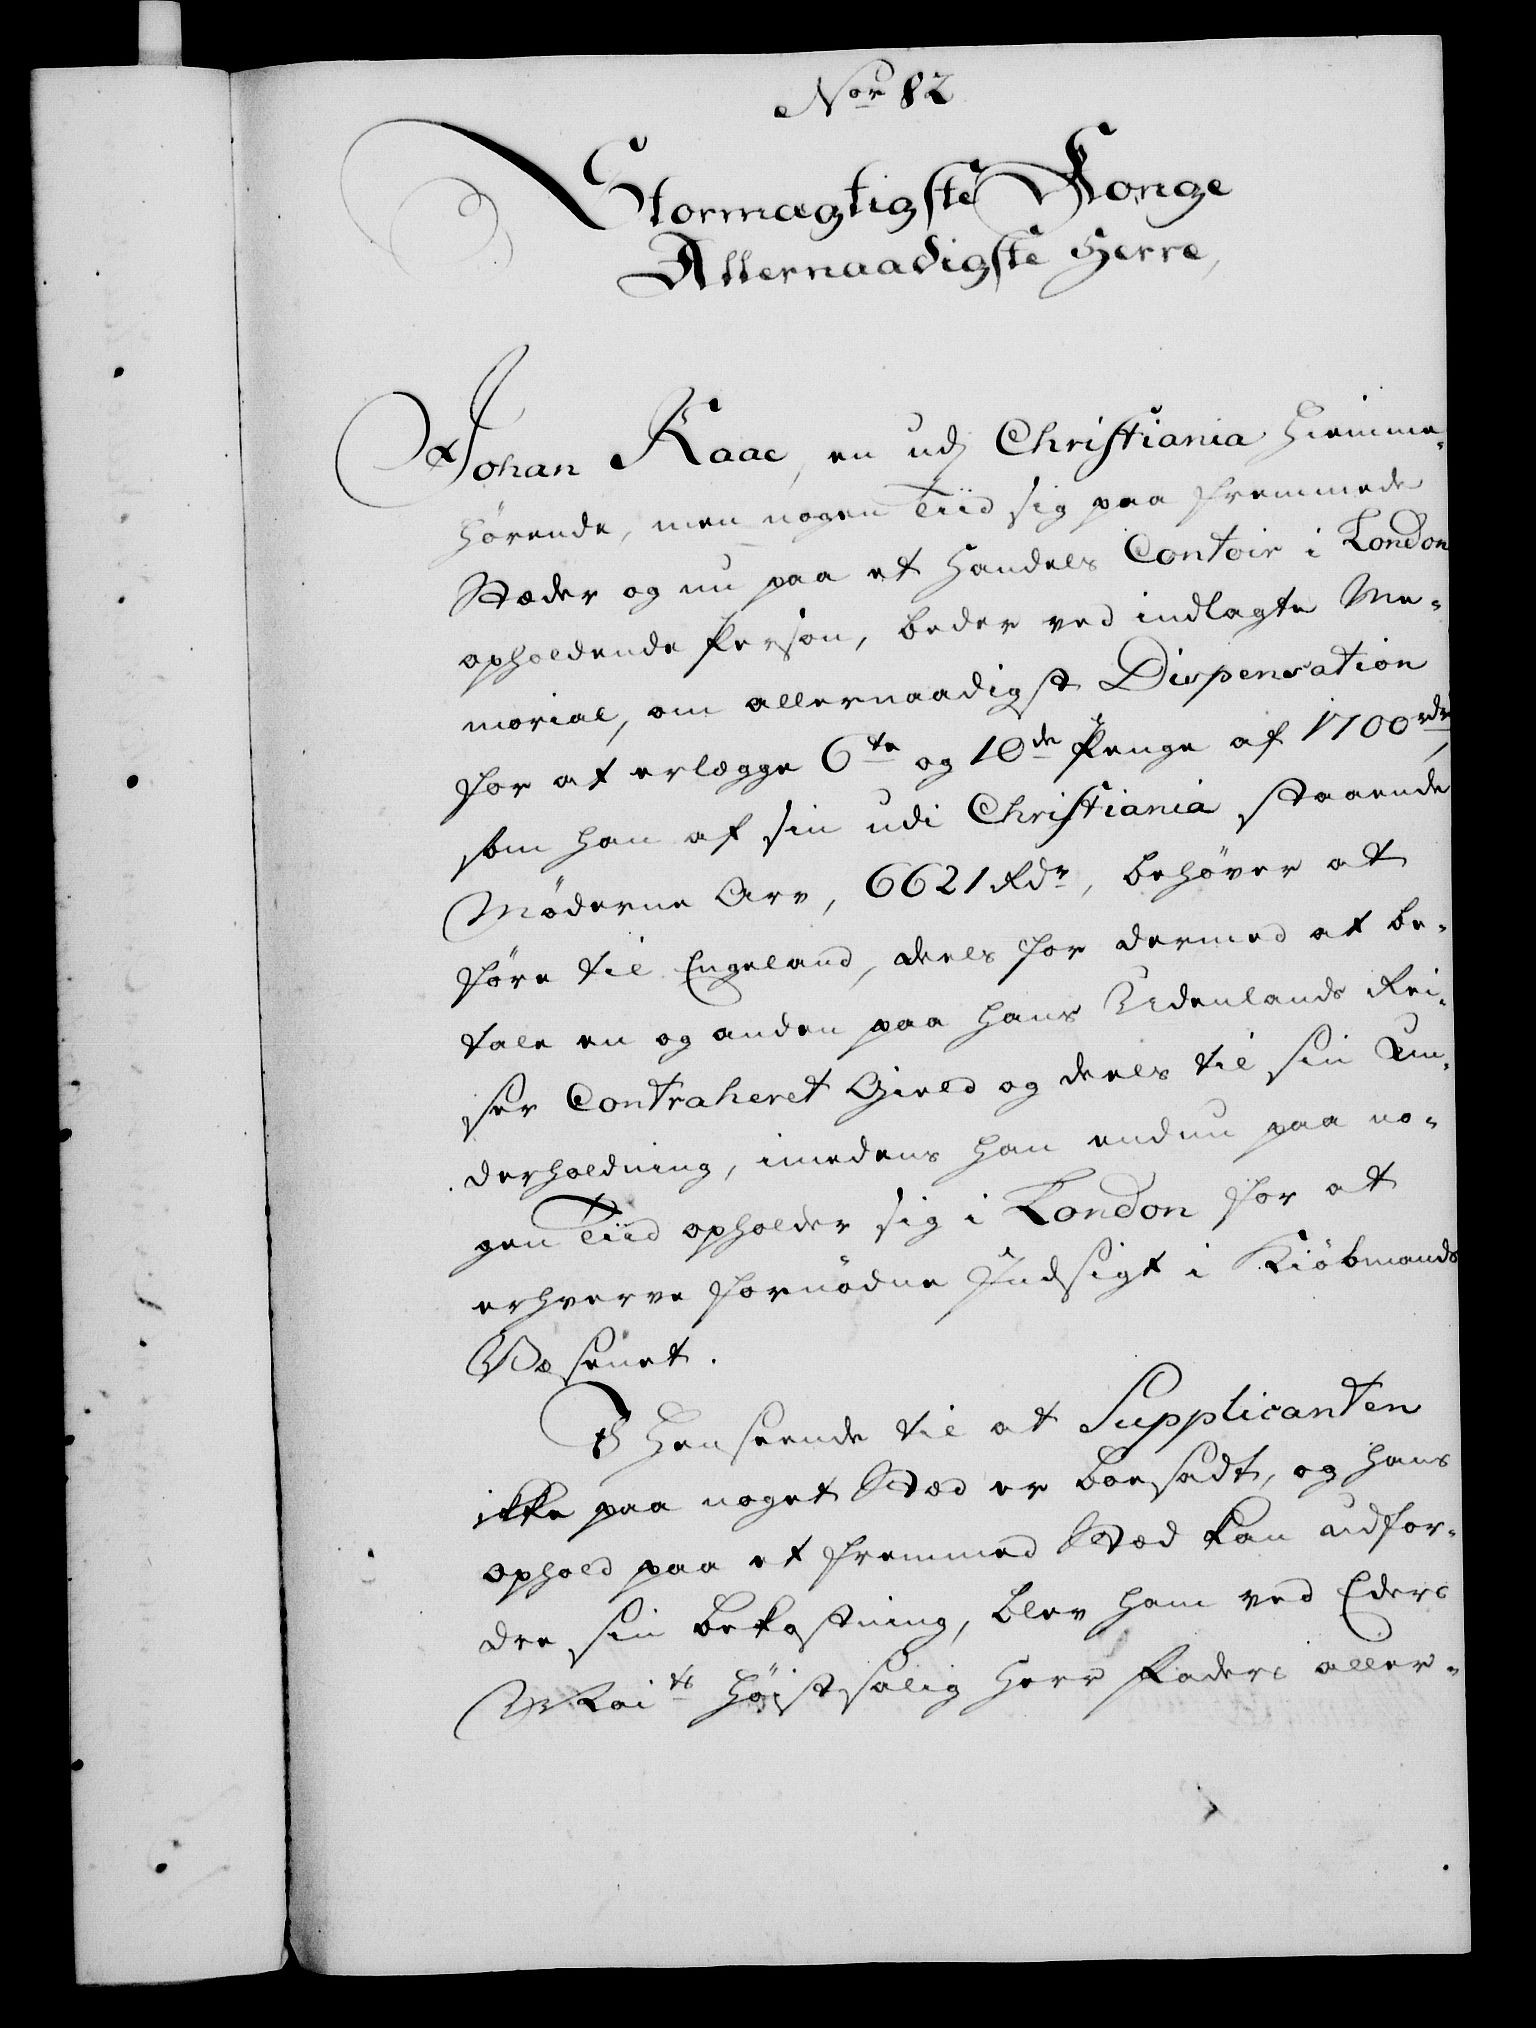 Nor 82
Stormagtigste Konge
Allernaadigste Herre,
Johan Kaae, en udj Christiania hiemme-
hørende, men nogen Tiid sig paa fremmede
Stæder og nu paa et Handels Contoir i London
opholdende Person, beder ved indlagte Me-
morial, om allernaadigst Dispensation
for at erlægge 6te og 10de Penge af 1700rdr,
som han af sin udi Christiania staaende
Møderne Arv, 6621 Rdr, behøver at
føre til Engeland, deels for dermed at be-
tale en og anden paa hans Udenlands Rei-
ser Contraheret Gield og deels til sin Un-
derholdning, imedens han endnu paa no-
gen Tiid opholder sig i London for at
erhverve fornødne Indsigt i Kiøbmands
Væsenet.
I Henseende til at Supplicanten
ikke paa noget Stæd er boesadt, og hans
ophold paa et fremmed Stæd kan udfor-
dre sin bekostning, blev ham ved Eders
Maits høist salig Herr Faders aller-